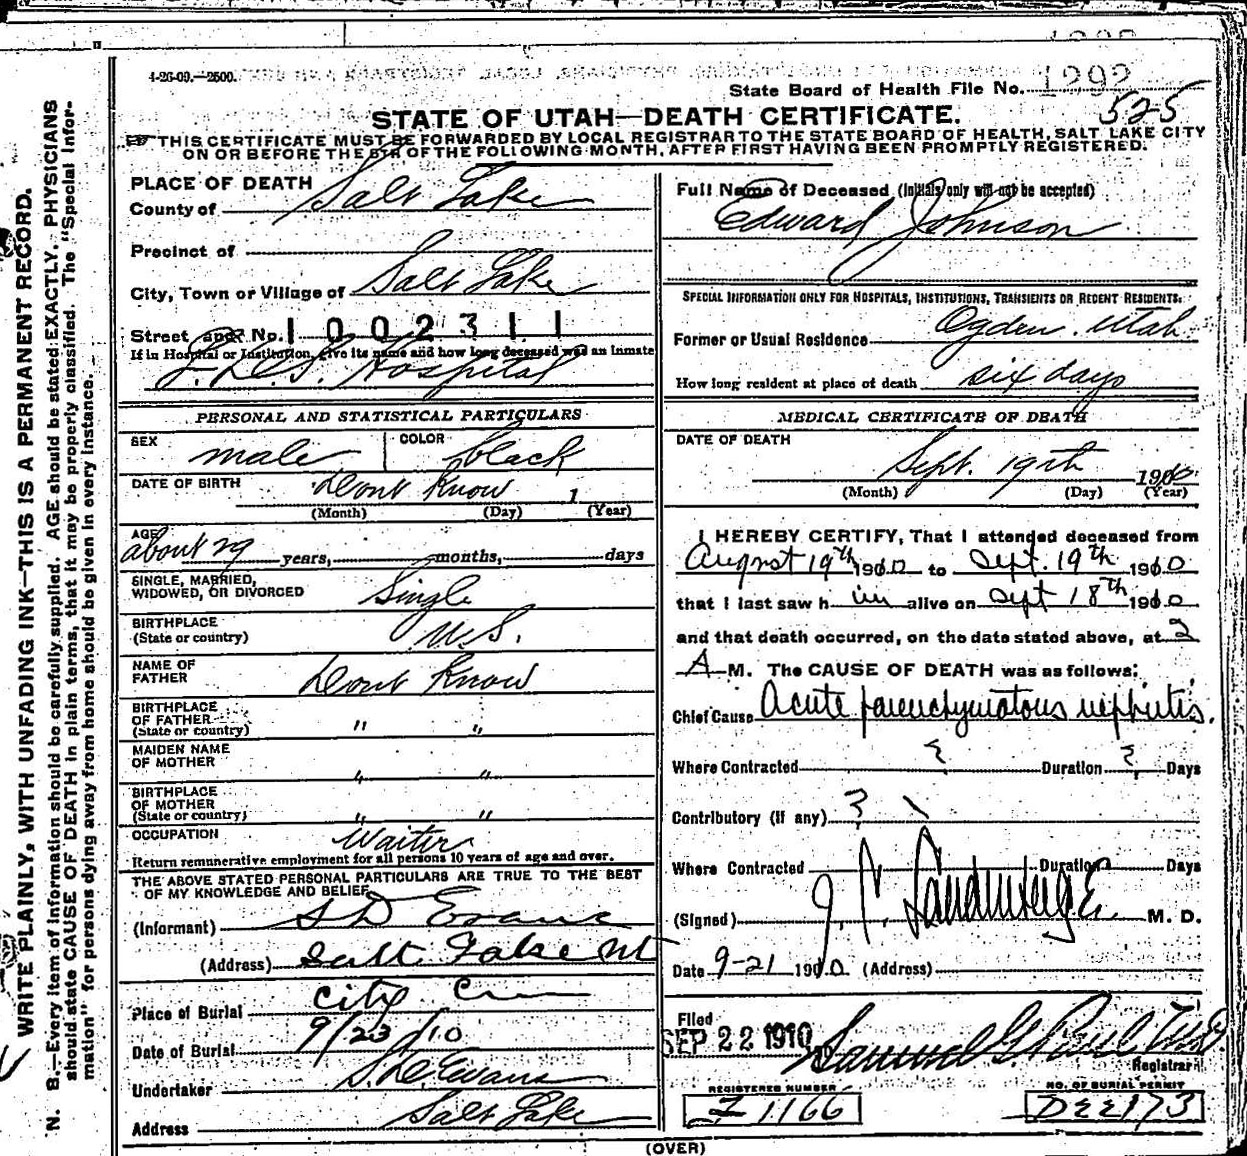 4-26-09.—2500.
State Board of Health File No. 1292
525
STATE OF UTAH—DEATH CERTIFICATE.
THIS CERTIFICATE MUST BE FORWARDED BY LOCAL REGISTRAR TO THE STATE BOARD OF HEALTH, SALT LAKE CITY
ON OR BEFORE THE 5TH OF THE FOLLOWING MONTH, AFTER FIRST HAVING BEEN PROMPTLY REGISTERED.
WRITE PLAINLY, WITH UNFADING INK—THIS IS A PERMANENT RECORD.
N. B.—Every item of information should be carefully supplied. AGE should be stated EXACTLY. PHYSICIANS
should state CAUSE OF DEATH in plain terms, that it may be properly classified. The "Special Infor-
mation" for persons dying away from home should be given in every instance.
PLACE OF DEATH
County of Salt Lake
Precinct of
City, Town or Village of Salt Lake
Street and No. 1002311
If in Hospital or Institution, give its name and how long deceased was an inmate
L.D.S. Hospital
PERSONAL AND STATISTICAL PARTICULARS
SEX male COLOR black
DATE OF BIRTH Dont Know 1
(Month) (Day) (Year)
AGE about 29 years, months, days
SINGLE, MARRIED,
WIDOWED, OR DIVORCED Single
BIRTHPLACE
(State or country) U.S.
NAME OF
FATHER Dont Know
BIRTHPLACE
OF FATHER
(State or country) " "
MAIDEN NAME
OF MOTHER " "
BIRTHPLACE
OF MOTHER
(State or country) " "
OCCUPATION Waiter
Return remunerative employment for all persons 10 years of age and over.
THE ABOVE STATED PERSONAL PARTICULARS ARE TRUE TO THE BEST
OF MY KNOWLEDGE AND BELIEF
(Informant) S D Evans
(Address) Salt Lake Ut
Place of Burial City Cem
Date of Burial 9/23/10
Undertaker S. D. Evans
Address Salt Lake
Full Name of Deceased (Initials only will not be accepted)
Edward Johnson
SPECIAL INFORMATION ONLY FOR HOSPITALS, INSTITUTIONS, TRANSIENTS OR RECENT RESIDENTS.
Former or Usual Residence Ogden. Utah.
How long resident at place of death six days
MEDICAL CERTIFICATE OF DEATH
DATE OF DEATH
Sept. 19th 1910
(Month) (Day) (Year)
I HEREBY CERTIFY, That I attended deceased from
August 19th 1910 to Sept. 19th 1910
that I last saw h im alive on Sept 18th 1910
and that death occurred, on the date stated above, at 2
A M. The CAUSE OF DEATH was as follows:
Chief Cause Acute parenchymatous nephritis.
Where Contracted ? Duration ? Days
Contributory (if any) ?
Where Contracted Duration Days
(Signed) M. D.
Date 9-21 1910 (Address)
Filed
SEP 22 1910 Samuel G. Paul
Registrar
REGISTERED NUMBER
I 1166
NO. OF BURIAL PERMIT
DEE173
(OVER)